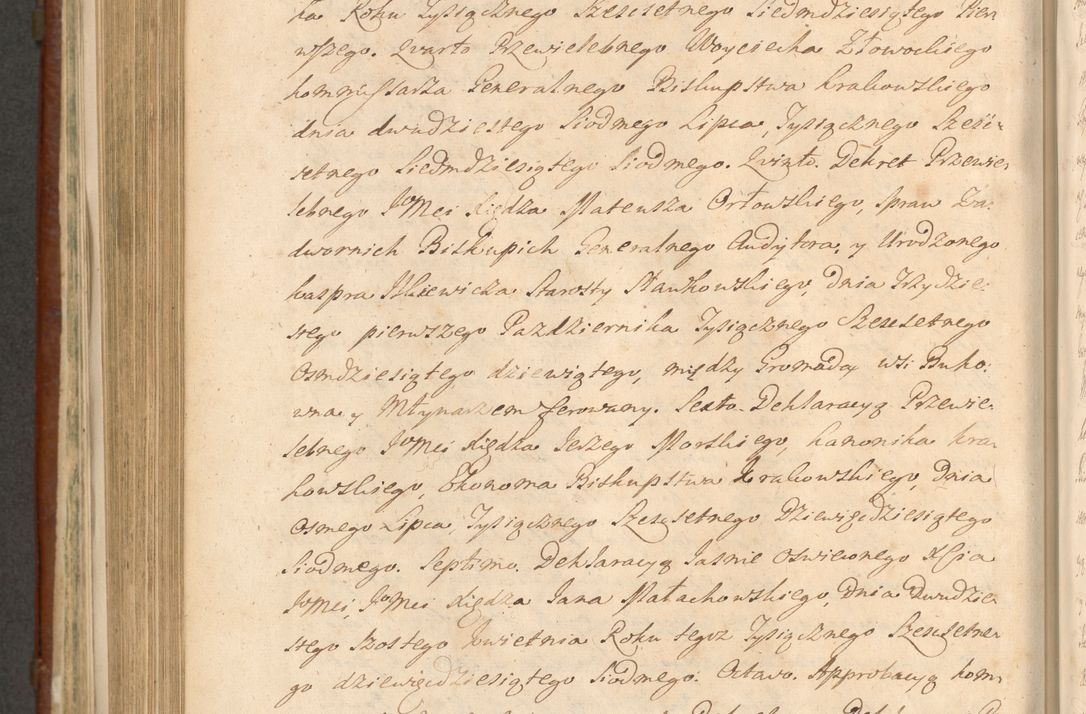 ka Roku Tysiącznego Szescsetnego Siedmdziesiątego Pier
wszego. Quarto Przewielebnego Woyciecha Złowockiego
kommissarza Generalnego Biskupstwa krakowskiego
dnia dwudziestego Siodmego Lipca, Tysiącznego Sześć-
setnego Siedmdziesiątego Siodmego. Quinto. Dekret Przewie-
lebnego JoMci Xiędza Mateusza Orłowskiego, spraw Za-
dwornich Biskupich Generalnego Audytora, y Urodzonego
kaspra Starosty Sławkowskiego, Dnia Trzydzie-
stego pierwszego Pazdziernika Tysiącznego Szescsetnego
Osmdziesiątego dziewiątego, między Gromadą wsi Buko-
wna y Młynarzem ferowany. Sexto. Deklaracyą Przewie-
lebnego JoMci Xiędza Jerzego Morskiego, kanonika kra-
kowskiego, Ekonoma Biskupstwa krakowskiego, Dnia
Osmego Lipca, Tysiącznego Szescsetnego Dziewięćdziesiątego
Siodmego. Septimo. Deklaracyą Jasnie Oswieconego Xsia
JoMci, JoMci Xiędza Jana Małachowskiego, Dnia Dwudzie-
stego Szostego kwietnia Roku tegoz Tysiącznego Szescsetne-
go dziewięćdziesiątego Siodmego. Octavo. Approbacyą kom-